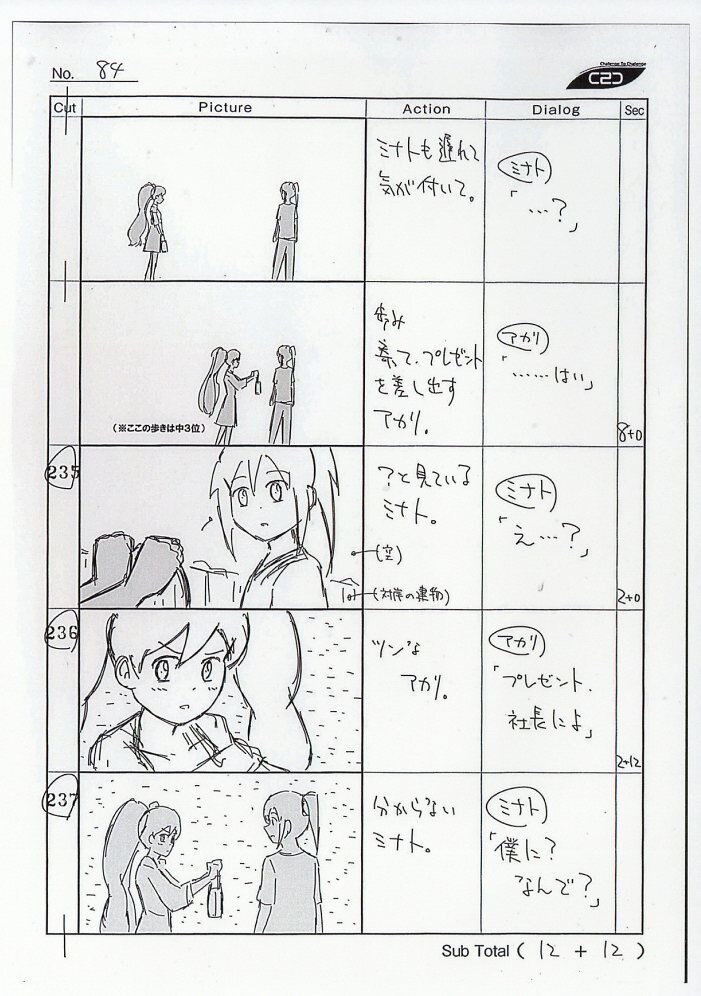 No. 84
Challenge To Challenge
C2C
Cut Picture Action Dialog Sec
ミナトも遅れて
気が付いて。
ミナト
「…?」
歩み
寄って、プレゼント
を差し出す
アカリ。
(※ここの歩きは中3位)
アカリ
「……はい」
8+0
235
?と見ている
ミナト。
(空)
(対岸の建物)
ミナト
「え…?」
2+0
236
ツンな
アカリ。
アカリ
「プレゼント、
社長によ」
2+12
237
分からない
ミナト。
ミナト
「僕に?
なんで?」
Sub Total ( 12 + 12 )